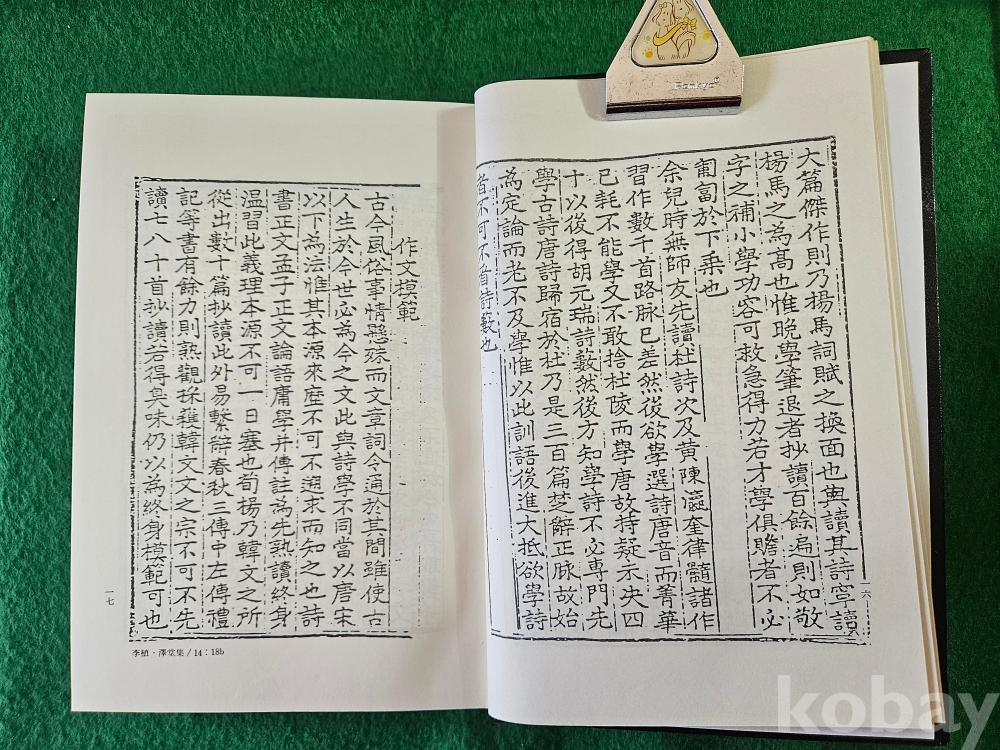 大篇傑作則乃楊馬詞賦之換面也與讀其詩寧讀
楊馬之為高也惟晚學筆退者抄讀百餘遍則如敬
字之補小學功容可救急得力若才學俱贍者不必
匍匐於下乘也
余兒時無師友先讀杜詩次及黃陳瀛奎律髓諸作
習作數千首路脉已差然後欲學選詩唐音而菁華
已耗不能學又不敢捨杜陵而學唐故持疑未决四
十以後得胡元瑞詩藪然後方知學詩不必專門先
學古詩唐詩歸宿於杜乃是三百篇楚辭正脉故始
為定論而老不及學惟以此訓語後進大抵欲學詩
者不可不看詩藪也
一六
作文模範
古今風俗事情懸殊而文章詞令通於其間雖使古
人生於今世必為今之文此與詩學不同當以唐宋
以下為法惟其本源來歷不可不溯求而知之也詩
書正文孟子正文論語庸學并傳註為先熟讀終身
溫習此義理本源不可一日塞也荀楊乃韓文之所
從出數十篇抄讀此外易繫辭春秋三傳中左傳禮
記等書有餘力則熟觀採穫韓文文之宗不可不先
讀七八十首抄讀若得臭味仍以為終身模範可也
一七
李植・澤堂集/14：18b
kobay